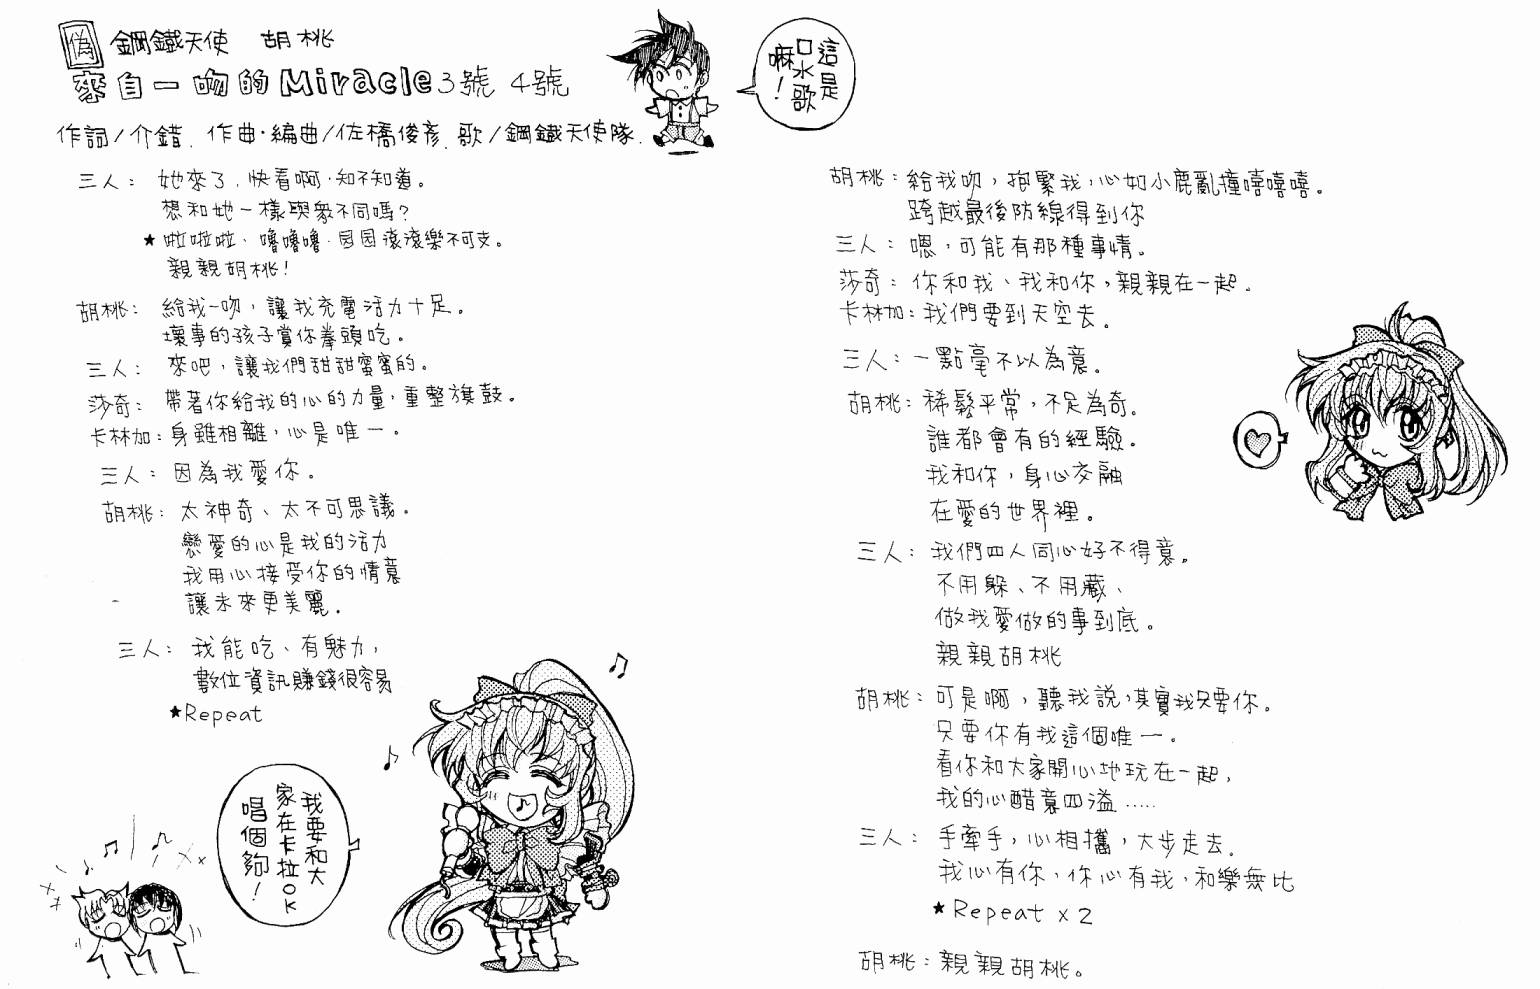 偽 鋼鐵天使 胡桃
來自一吻的Miracle3號 4號
這是
口水歌
嘛!
作詞/介錯. 作曲·編曲/佐橋俊彥. 歌/鋼鐵天使隊.
三人: 她來了,快看啊,知不知道。
想和她一樣與眾不同嗎?
★啦啦啦、嚕嚕嚕、圓圓滾滾樂不可支。
親親胡桃!
胡桃: 給我一吻,讓我充電活力十足。
壞事的孩子賞你拳頭吃。
三人: 來吧,讓我們甜甜蜜蜜的。
莎奇: 帶著你給我的心的力量,重整旗鼓。
卡林加:身雖相離,心是唯一。
三人: 因為我愛你。
胡桃: 太神奇、太不可思議。
戀愛的心是我的活力
我用心接受你的情意
讓未來更美麗.
三人: 我能吃、有魅力,
數位資訊賺錢很容易
★Repeat
我要和大
家在卡拉OK
唱個夠!
胡桃:給我吻,抱緊我,心如小鹿亂撞嘻嘻嘻。
跨越最後防線得到你
三人: 嗯,可能有那種事情。
莎奇: 你和我、我和你,親親在一起。
卡林加:我們要到天空去.
三人:一點毫不以為意。
胡桃:稀鬆平常,不足為奇。
誰都會有的經驗。
我和你,身心交融
在愛的世界裡。
三人: 我們四人同心好不得意。
不用躲、不用藏、
做我愛做的事到底。
親親胡桃
胡桃:可是啊,聽我說,其實我只要你。
只要你有我這個唯一。
看你和大家開心地玩在一起,
我的心醋意四溢.....
三人: 手牽手,心相攜,大步走去.
我心有你,你心有我,和樂無比
★Repeat x 2
胡桃:親親胡桃。